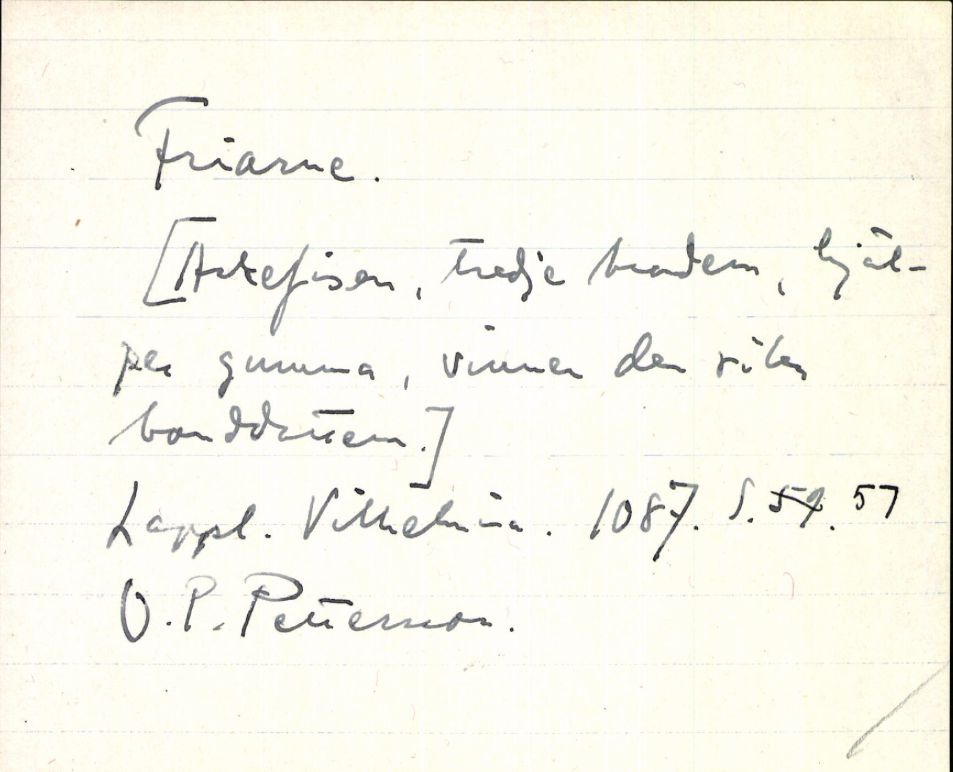 Friarne.
[Askefisen, tredje brodern, hjäl-
per gumma, vinner den rika
bonddottern.]
Lappl. Vilhelmina. 1087. S. 59. 57
O.P. Pettersson.